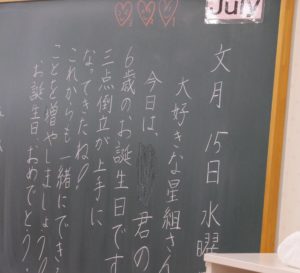 July
文月 15日 水曜
大好きな星組さん
今日は、 君の
6歳のお誕生日です
三点倒立が上手に
なってきたね!
これからも一緒にでき
ことを増やしましょう
お誕生日おめでとう